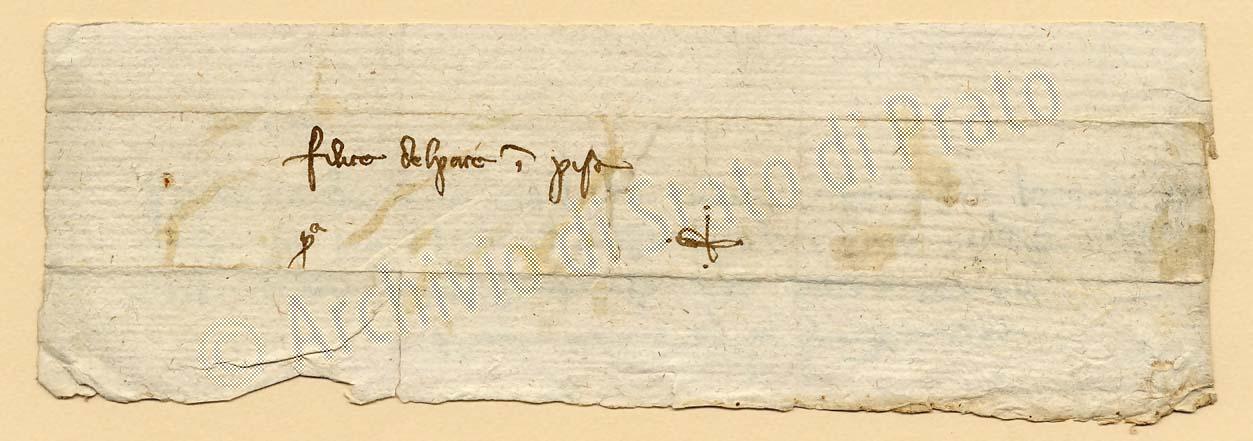 felice delpace ī pisa
pª
© Archivio di Stato di Prato